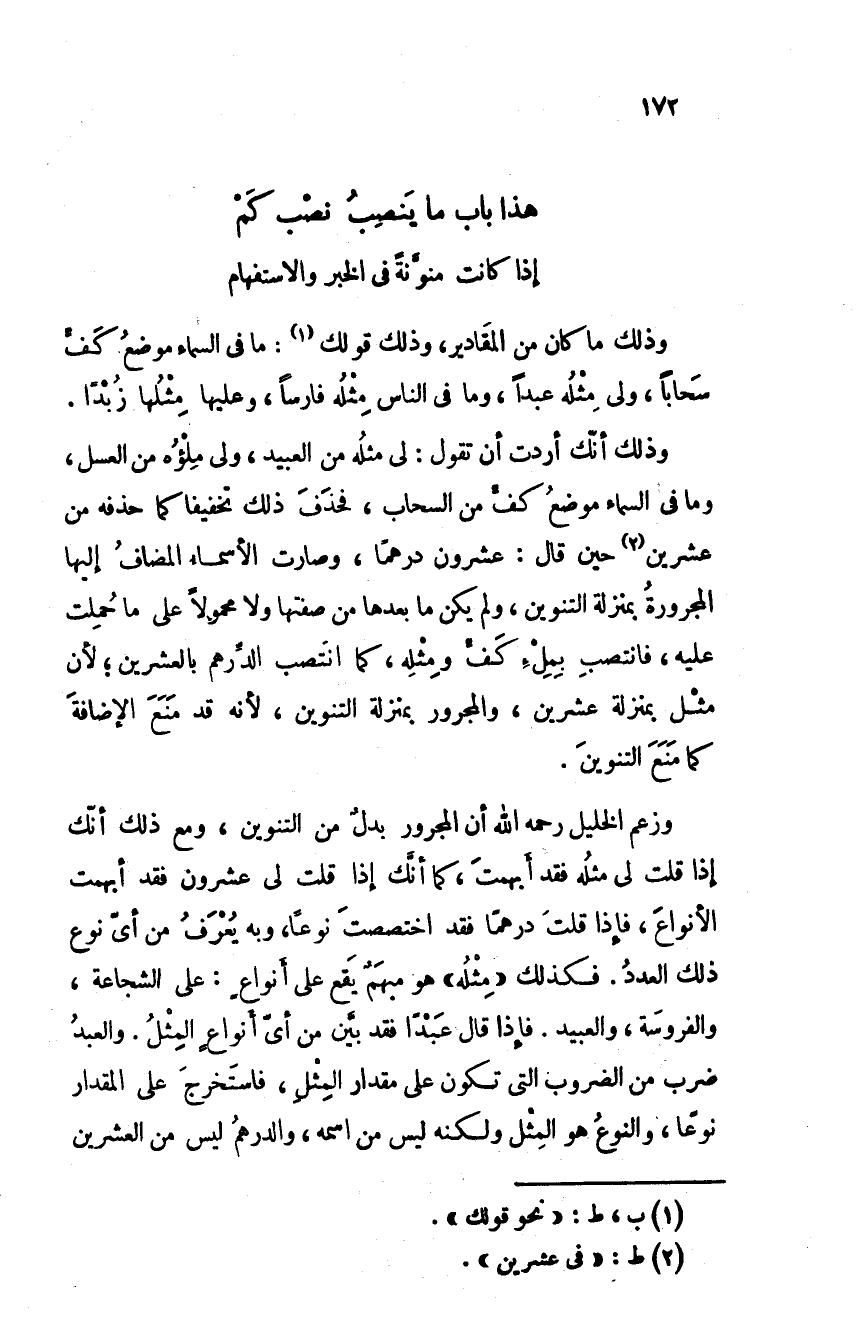 ١٧٢
هذا باب ما يَنصِبُ نصْب كَمْ
إذا كانت منوَّنةً فى الخبر والاستفهام
وذلك ما كان من المقَادير، وذلك قولك (١) : ما فى السماء موضعُ كَفٍّ
سَحاباً ، ولى مِثْلُه عبداً ، وما فى الناس مِثْلُه فارساً ، وعليها مِثْلُها زُبْدًا .
وذلك أنّك أردت أن تقول : لى مثلُه من العبيد ، ولى مِلْؤُه من العسل ،
وما فى السماء موضعُ كفٍّ من السحاب ، فحذَفَ ذلك تخفيفا كما حذفه من
عشرين (٢) حين قال : عشرون درهمًا ، وصارت الأسماء المضافُ إليها
المجرورةُ بمنزلة التنوين ، ولم يكن ما بعدها من صفتها ولا محمولاً على ما حُمِلت
عليه ، فانتصبِ بِمِلْءِ كَفٍّ ومِثْلِه ، كما انتَصب الدِّرهم بالعشرين ؛ لأن
مثْـل بمنزلة عشرين ، والمجرور بمنزلة التنوين ، لأنه قد مَنَعَ الإضافةَ
كما مَنَعَ التنوينَ .
وزعم الخليل رحمه الله أن المجرور بدلٌ من التنوين ، ومع ذلك أنّك
إذا قلت لى مثلُه فقد أبهمتَ ، كما أنَّك إذا قلت لى عشرون فقد أبهمت
الأنواعَ ، فإذا قلتَ درهمًا فقد اختصصتَ نوعًا، وبه يُعْرَفُ من أىّ نوع
ذلك العددُ . فـكذلك «مِثْلُه» هو مبهَمٌ يَقع على أنواعٍ : على الشجاعة ،
والفروسَة ، والعبيد . فإذا قال عَبْدًا فقد بيَّن من أىّ أنواعٍ المِثْلُ . والعبدُ
ضرب من الضروب التى تـكون على مقدار المِثْلِ ، فاستَخرجَ على المقدار
نوعًا ، والنوعُ هو المِثْل ولـكنه ليس من اسمه ، والدرهمُ ليس من العشرين
(١) ب ، ط : « نحو قولك » .
(٢) ط : « فى عشرين » .